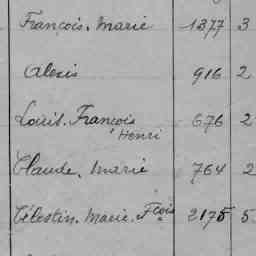 François. Marie 1377 3
Alexis 916 2
Louis. François 676 2
Henri
Claude. Marie 764 2
Célestin. Marie. Fçois 2175 5